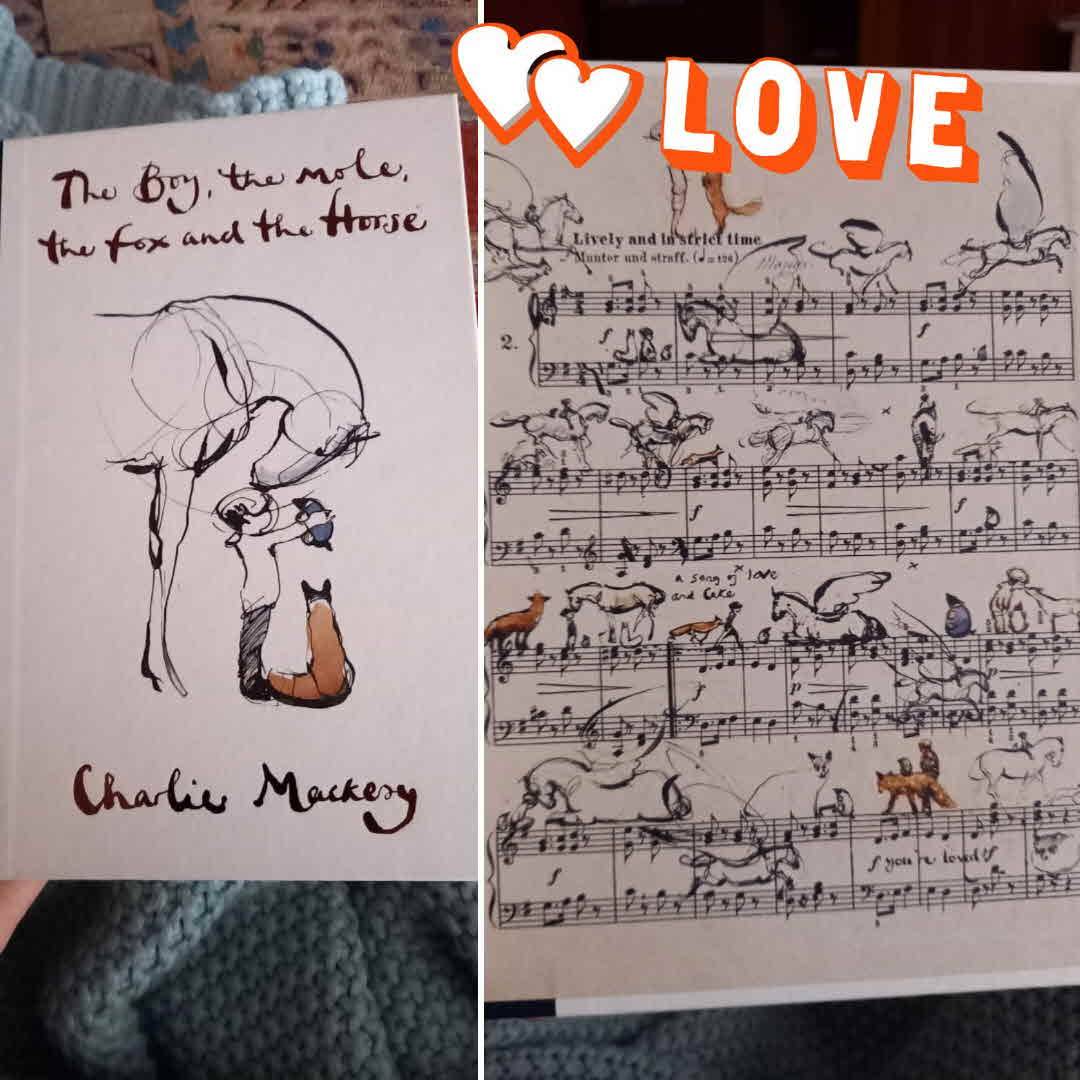 The Boy, the mole,
the fox and the Horse
Charlie Mackesy
LOVE
Lively and in strict time
Munter und straff. (♩=126)
2.
f
f
f
f
a song of love
and cake
f
p
p
f
f you're loved f